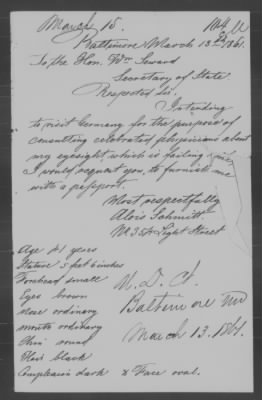 March 15.
Baltimore March 13th 1861.
To the Hon. Wm Seward
Secretary of State
Respected Sir.
Intending
to visit Germany for the purpose of
consulting celebrated physicians about
my eyesight, which is failing
I would request you, to furnish me
with a passport.
Most respectfully
Alois Schmitt
Light Street
Age 41 years
Stature 5 feet 6 inches
Forehead small
Eyes brown
Nose ordinary
Mouth ordinary
Chin round
Hair black
Complexion dark & Face oval.
Baltimore Md
March 13. 1861.